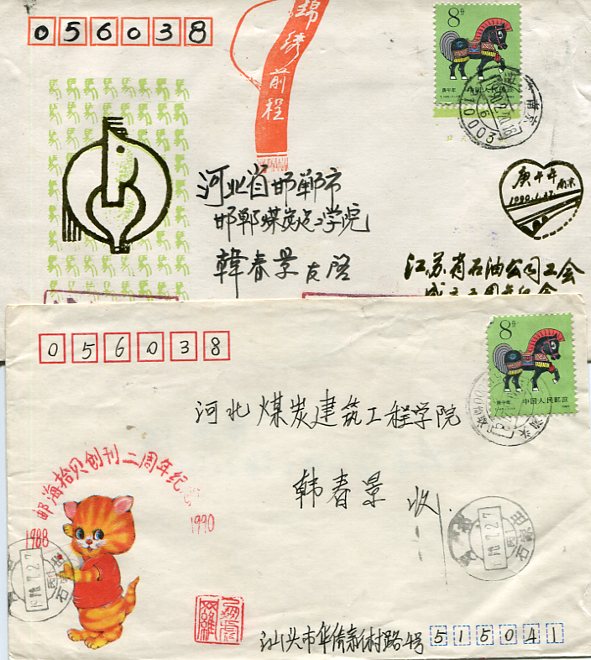 056038
锦绣前程
8分
庚午年
中国人民邮政
河北省邯郸市
邯郸煤炭建工学院
韩春景 友启
庚午年
南京
1990.1.27
江苏省石油公司工会
成立五周年纪念
056038
8分
庚午年
中国人民邮政
河北煤炭建筑工程学院
韩春景 收
邮海拾贝创刊二周年纪念
1988
1990
汕头市华侨新村路4号
515041